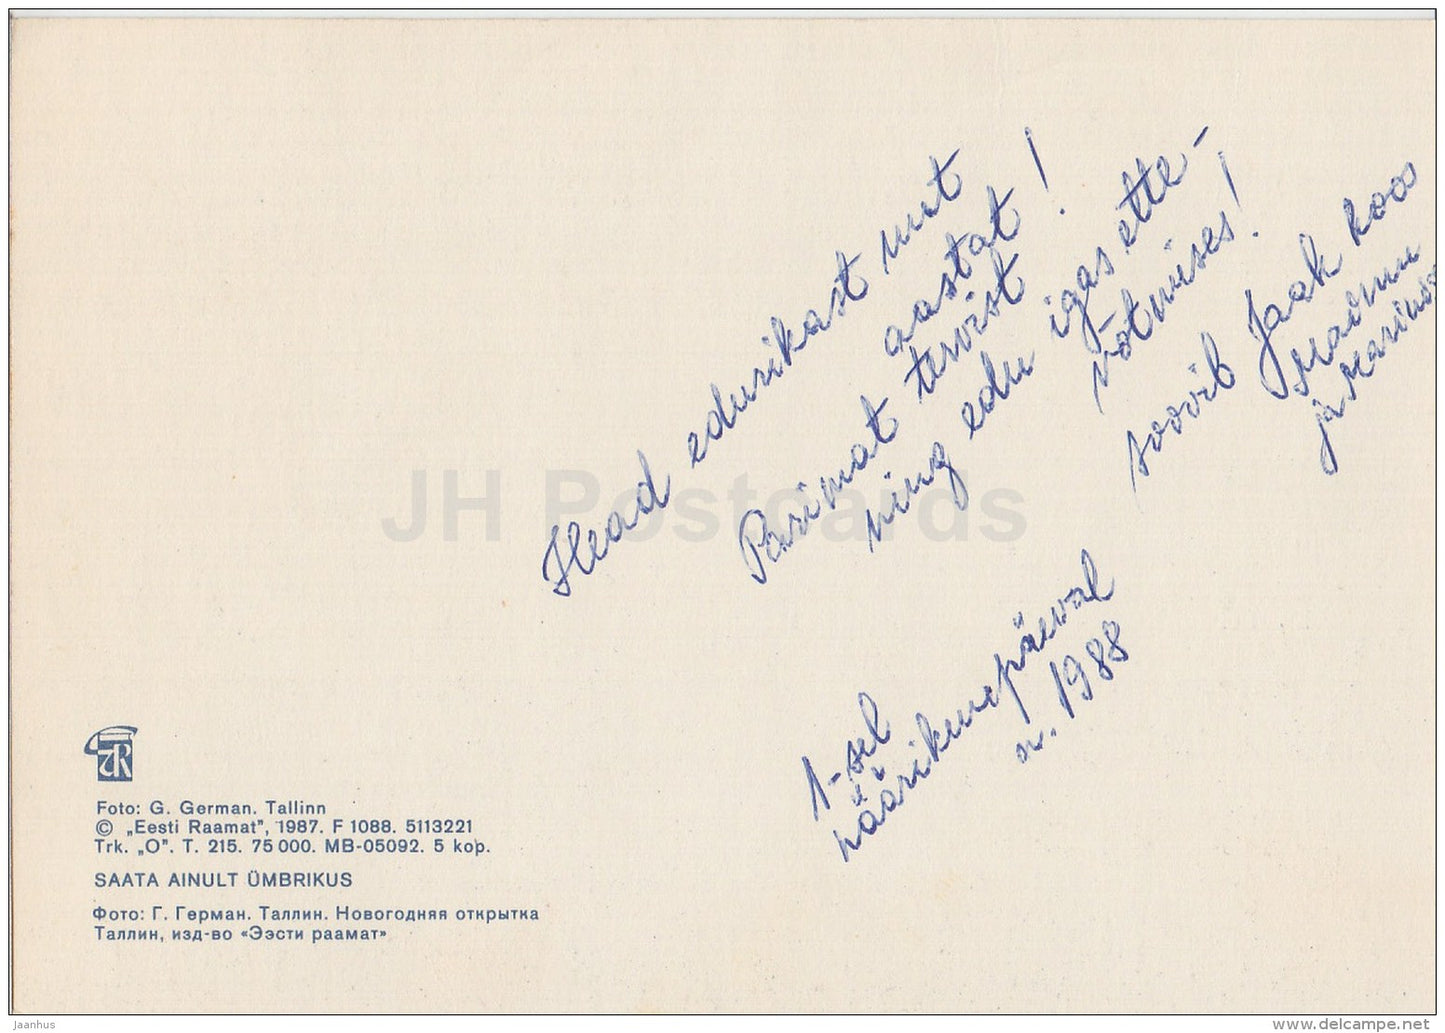 Head edurikast uut
aastat!
Parimat tervist
ning edu igas ette-
võtmises!
soovib Jaak koos
ja
1-sel
näärikuupäeval
a. 1988
JH Postcards
Foto: G. German. Tallinn
© „Eesti Raamat", 1987. F 1088. 5113221
Trk. „O". T. 215. 75 000. MB-05092. 5 kop.
SAATA AINULT ÜMBRIKUS
Фото: Г. Герман. Таллин. Новогодняя открытка
Таллин, изд-во «Ээсти раамат»
jaanhus
www.delcampe.net